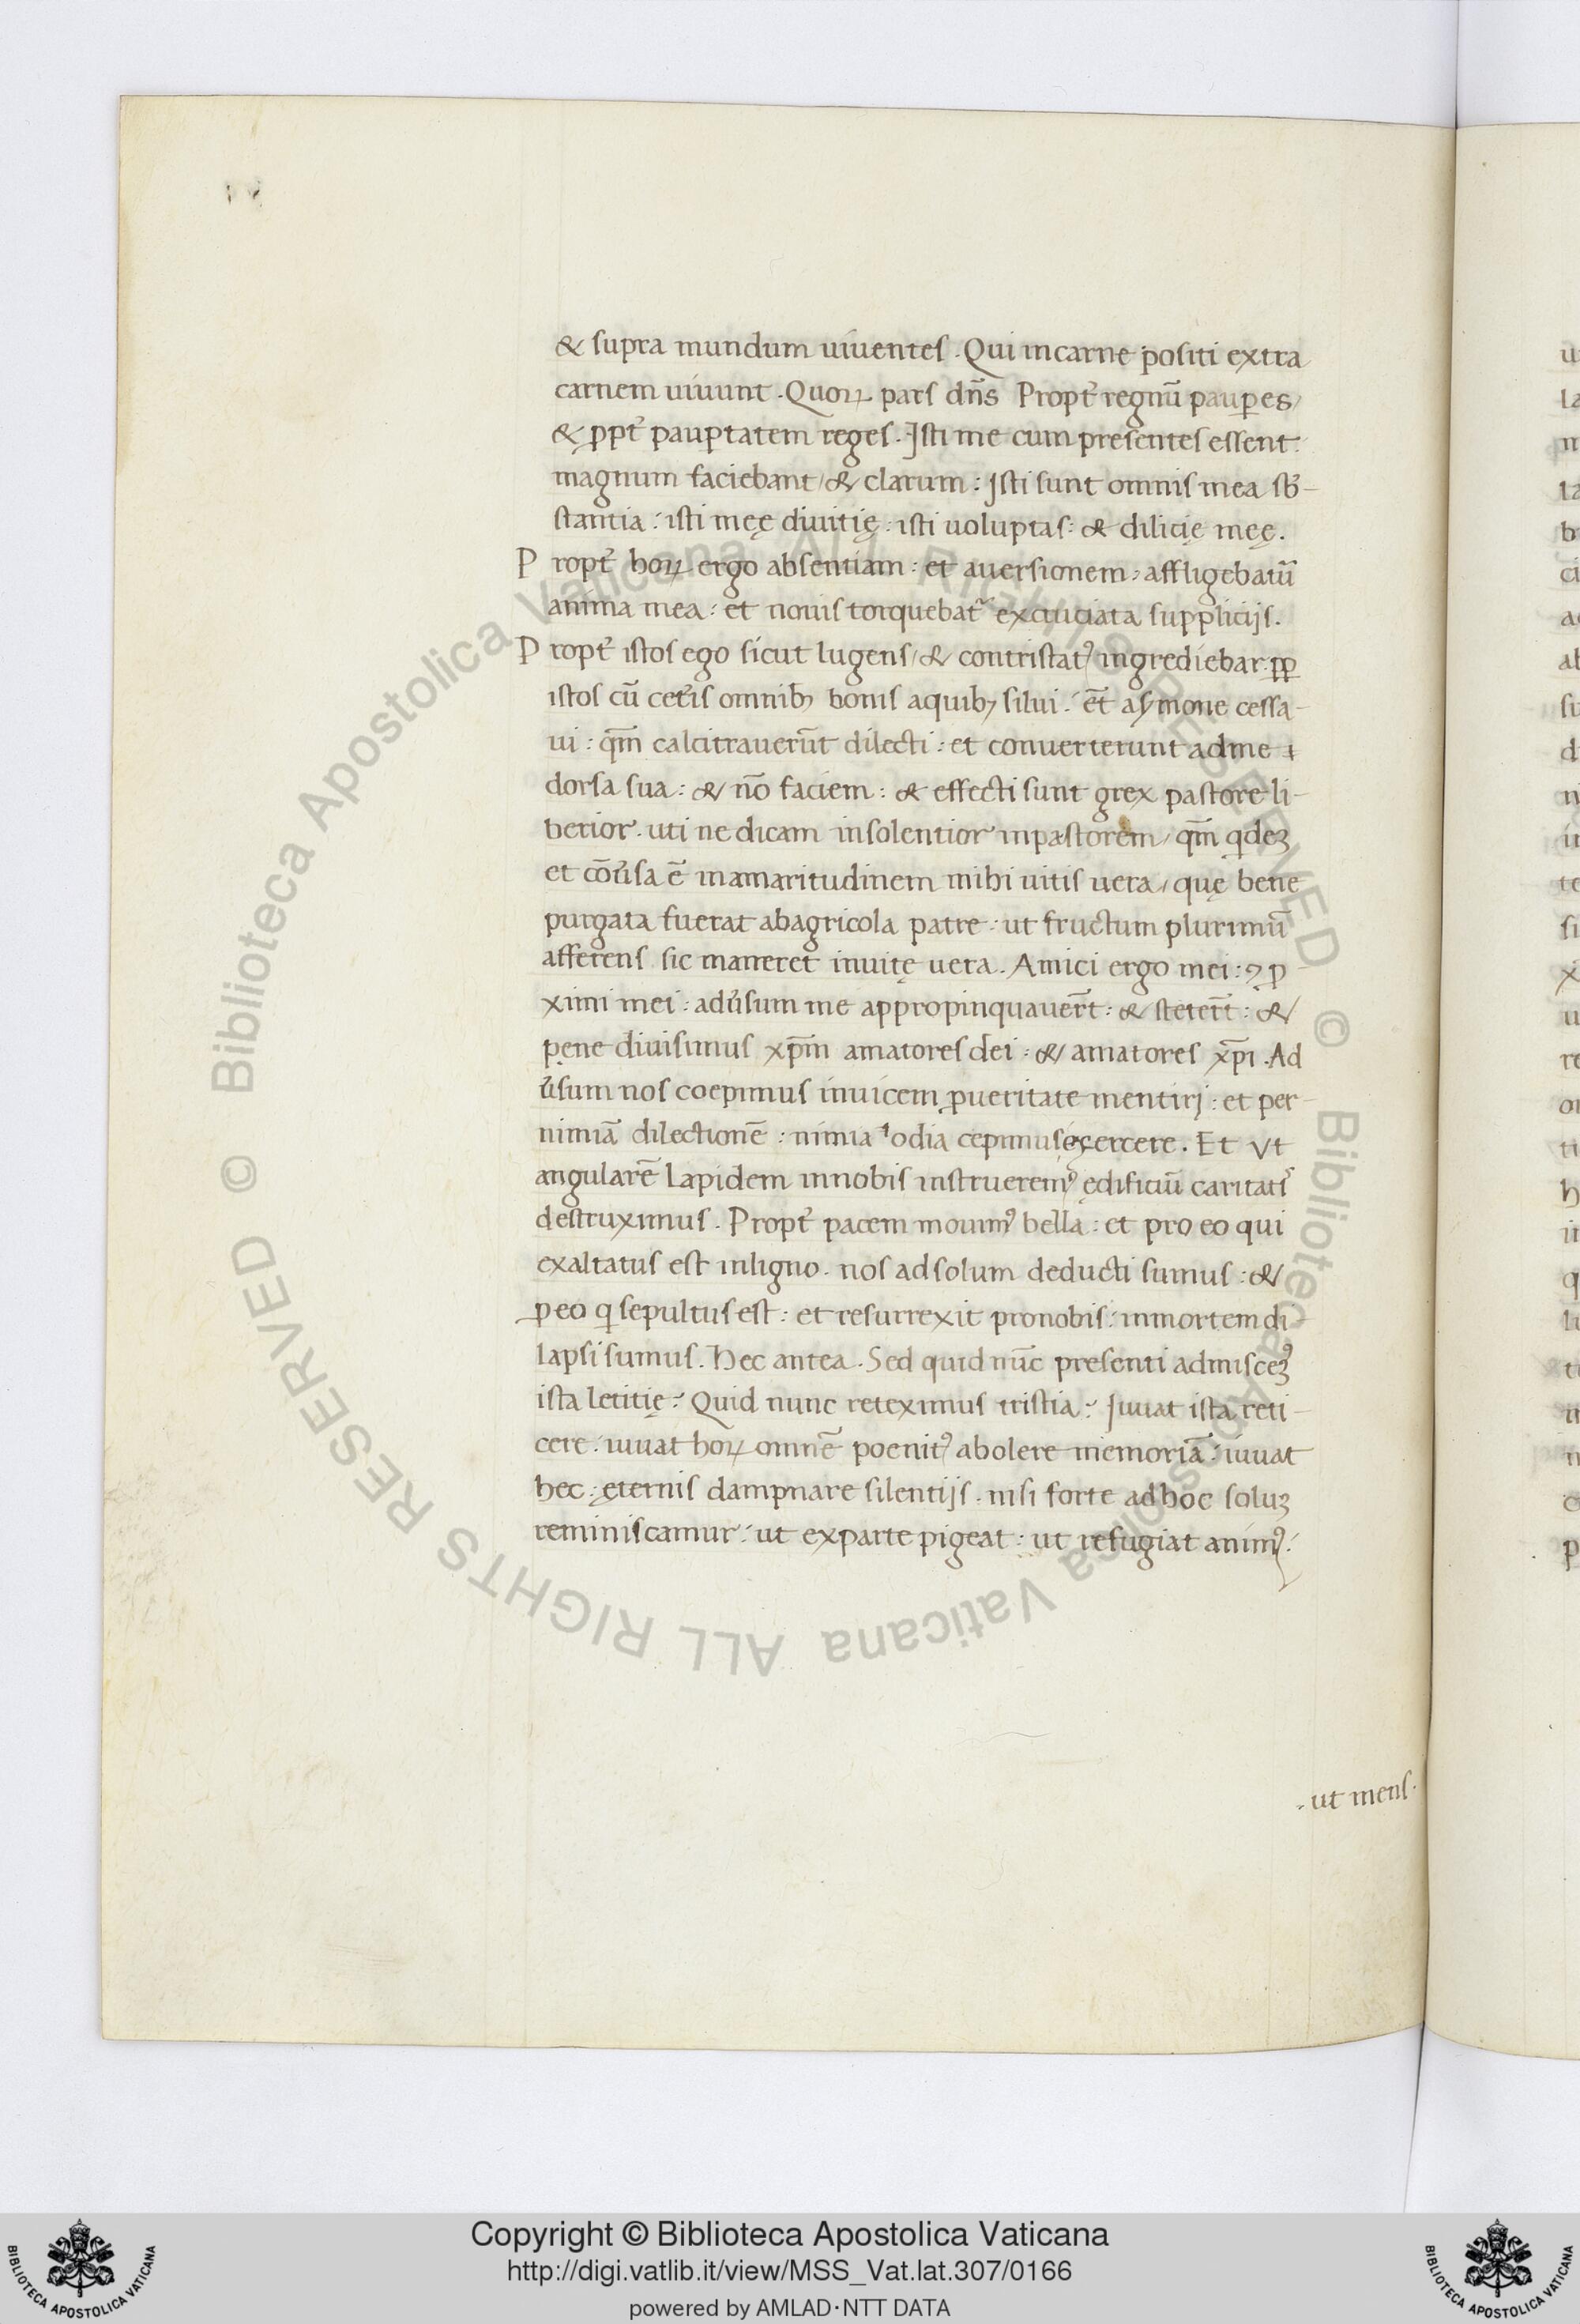 & supra mundum uiuentes . Qui incarne positi extra
carnem uiuunt . Quoꝝ pars dn̄s Propt̉ regnū pauꝑes /
& ꝓpt̉ pauꝑtatem reges . Isti me cum presentes essent :
magnum faciebant / & clarum : Isti sunt omnis mea sb̄-
stantia : isti meę diuitię : isti uoluptas : & dilicię meę .
P ropt̉ hoꝝ ergo absentiam : et auersionem , affligebatu᷑
anima mea : et nouis torquebat᷑ excruciata supplicijs .
P ropt̉ istos ego sicut lugens / & contristatꝰ ingrediebar : ꝓꝑ
istos cū cet̉is omnibꝫ bonis aquibꝫ silui : et̄ asymone cessa-
ui : qm̄ calcitrauerūt dilecti : et conuerterunt adme
dorsa sua : & nō faciem : & effecti sunt grex pastore li-
berior . uti ne dicam insolentior inpastorem / qm̄ qdeꝫ
et cōu̕sa ē inamaritudinem mihi uitis uera , quę bene
purgata fuerat abagricola patre : ut fructum plurimū
afferens sic maneret inuitę uera . Amici ergo mei : ꝯ ꝓ-
ximi mei : adu̕sum me appropinquauer̄t : & steter̄t : &
pene diuisimus xp̄m amatores dei : & amatores xp̄i . Ad
u̕sum nos coepimus inuicem ꝓueritate mentirj : et per-
nimiā dilectionē : nimia odia cepimus exercere . Et Vt
angularē lapidem innobis instrueremꝰ ędificiū caritatꝭ
destruximus . Propt̉ pacem mouimꝰ bella : et pro eo qui
exaltatus est inligno . nos adsolum deducti sumus : &
ꝓ eo q sepultus est : et resurrexit pronobis : inmortem di-
lapsi sumus . Hec antea . Sed quid nūc presenti admisceꝫꝰ
ista letitię ? Quid nunc reteximus tristia ? Iuuat ista reti-
cere : iuuat hoꝝ omnē poenitꝰ abolere memoriā : iuuat
hec : ęternis dampnare silentijs . nisi forte adhoc soluꝫ
reminiscamur : ut exparte pigeat : ut refugiat animꝰ :
. ut mens .
Copyright © Biblioteca Apostolica Vaticana
http://digi.vatlib.it/view/MSS_Vat.lat.307/0166
powered by AMLAD·NTT DATA
BIBLIOTECA APOSTOLICA VATICANA
BIBLIOTECA APOSTOLICA VATICANA
© Biblioteca Apostolica Vaticana ALL RIGHTS RESERVED © Biblioteca Apostolica Vaticana ALL RIGHTS RESERVED